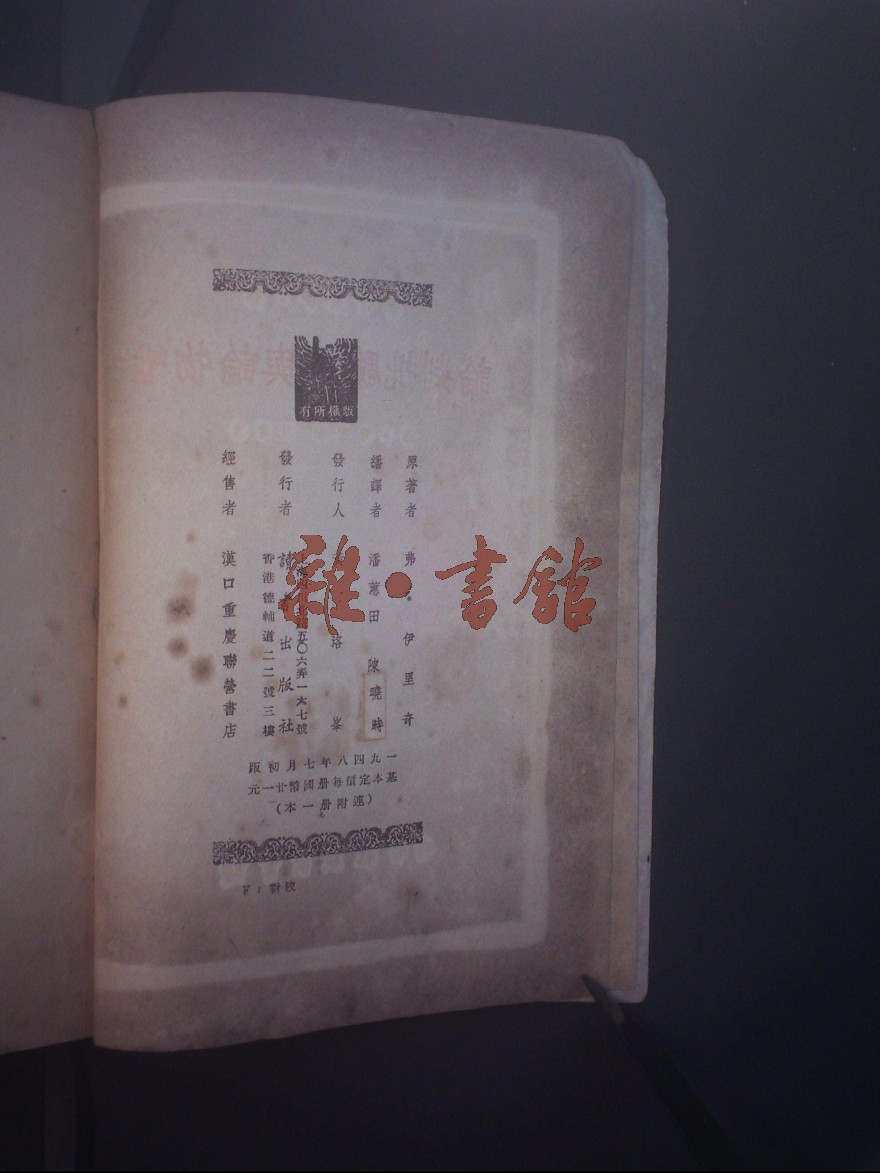 版權所有
原著者 弗 伊里奇
繙譯者 潘蕙田 陳曉時
發行人 洛峯
發行者 讀 出版社
路五〇六弄一六七號
香港德輔道二二號三樓
經售者 漢口重慶聯營書店
一九四八年七月初版
基本定價每册國幣廿一元
（連附册一本）
校對：
雜·書館